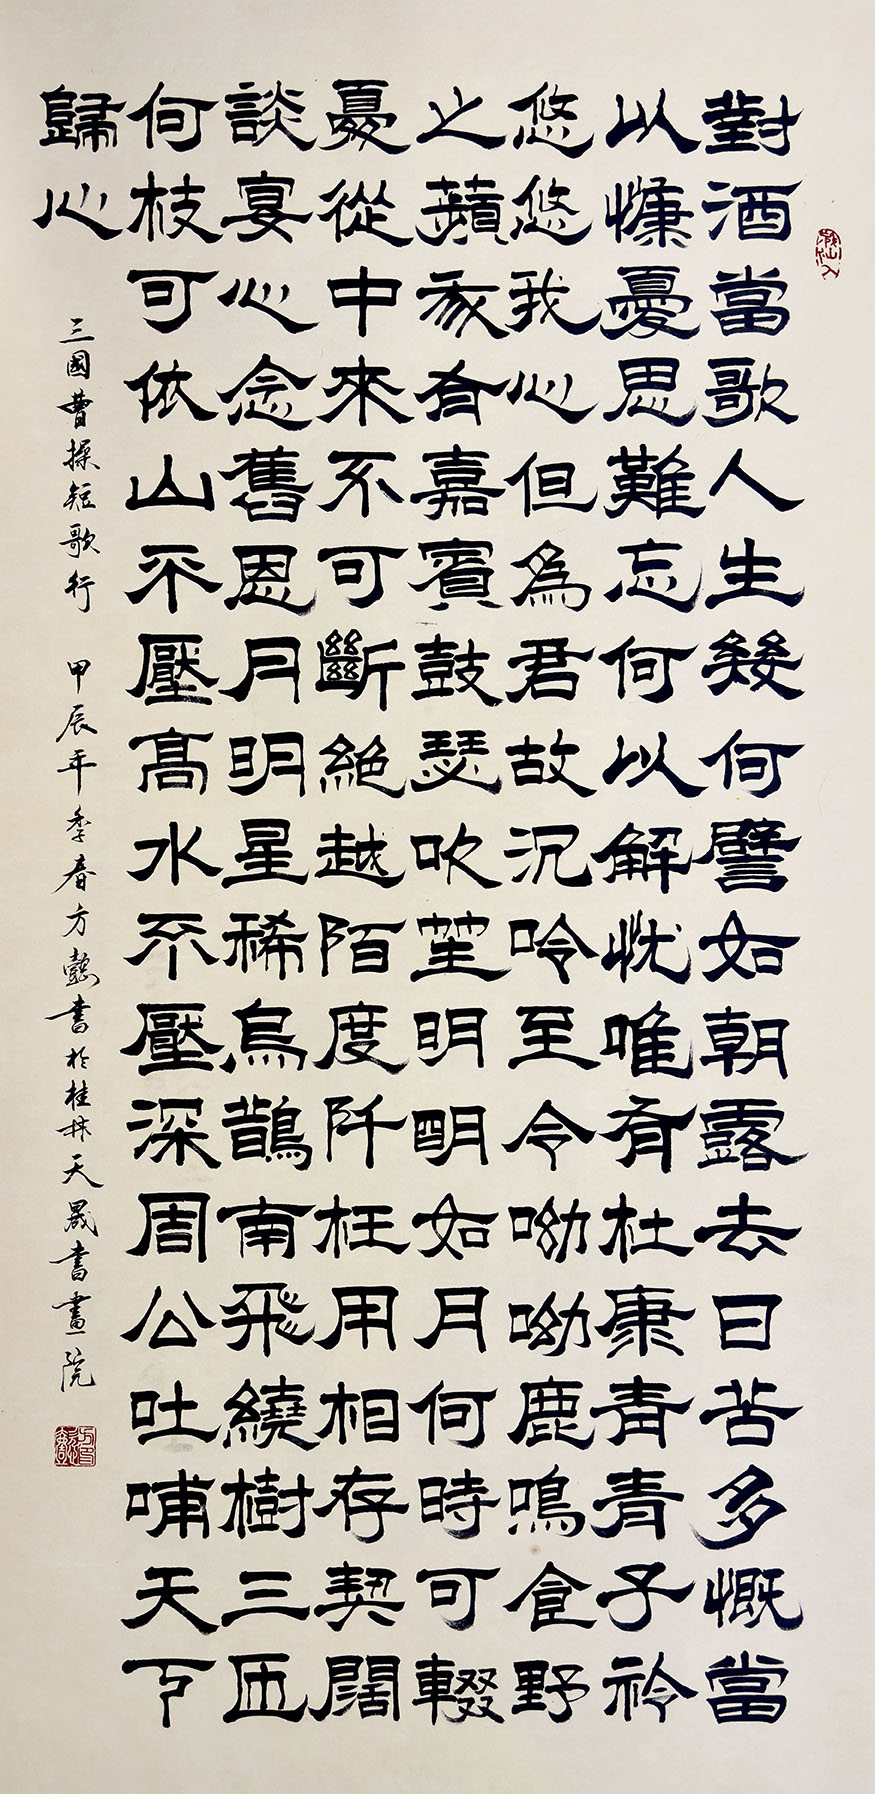 對酒當歌人生幾何譬如朝露去日苦多慨當
以慷憂思難忘何以解忧唯有杜康青青子衿
悠悠我心但為君故沉吟至今呦呦鹿鳴食野
之蘋我有嘉賓鼓瑟吹笙明明如月何時可輟
憂從中來不可斷絕越陌度阡枉用相存契闊
談宴心念舊恩月明星稀烏鵲南飛繞樹三匝
何枝可依山不壓高水不壓深周公吐哺天下
歸心
三國曹操短歌行 甲辰年季春方懿書於桂林天晟書畫院